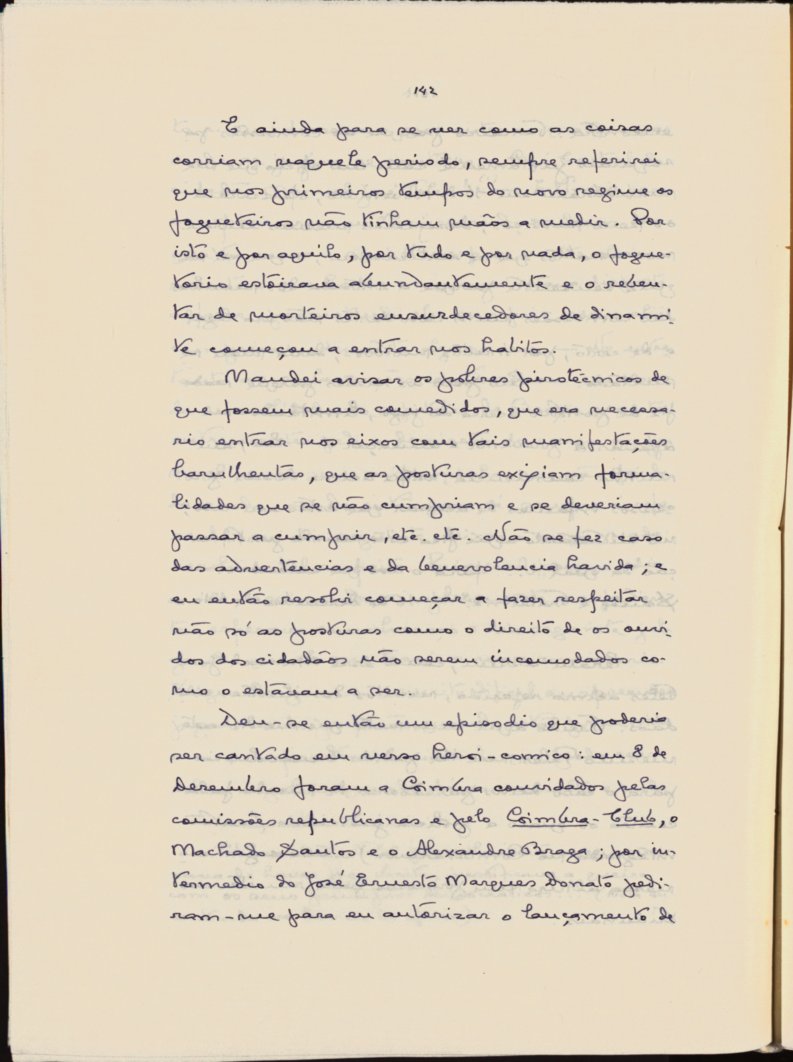 142
E ainda para se ver como as coisas
corriam naquele periodo, sempre referirei
que nos primeiros tempos do novo regime os
fogueteiros não tinham mãos a medir. Por
isto e por aquilo, por tudo e por nada, o fogue-
torio estoirava abundantemente e o reben-
tar de morteiros ensurdecedores de dinami-
te começou a entrar nos habitos.
Mandei avisar os pobres pirotécnicos de
que fossem mais comedidos, que era necessa-
rio entrar nos eixos com tais manifestações
barulhentas, que as posturas exigiam forma-
lidades que se não cumpriam e se deveriam
passar a cumprir, etc. etc. Não se fez caso
das advertencias e da benevolencia havida; e
eu então resolvi começar a fazer respeitar
não só as posturas como o direito de os ouvi-
dos dos cidadãos não serem incomodados co-
mo o estavam a ser.
Deu-se então um episodio que poderia
ser cantado em verso heroi-comico: em 8 de
Dezembro foram a Coimbra convidados pelas
comissões republicanas e pelo Coimbra-Club, o
Machado Santos e o Alexandre Braga; por in-
termedio do José Ernesto Marques Donato pedi-
ram-me para eu autorizar o lançamento de